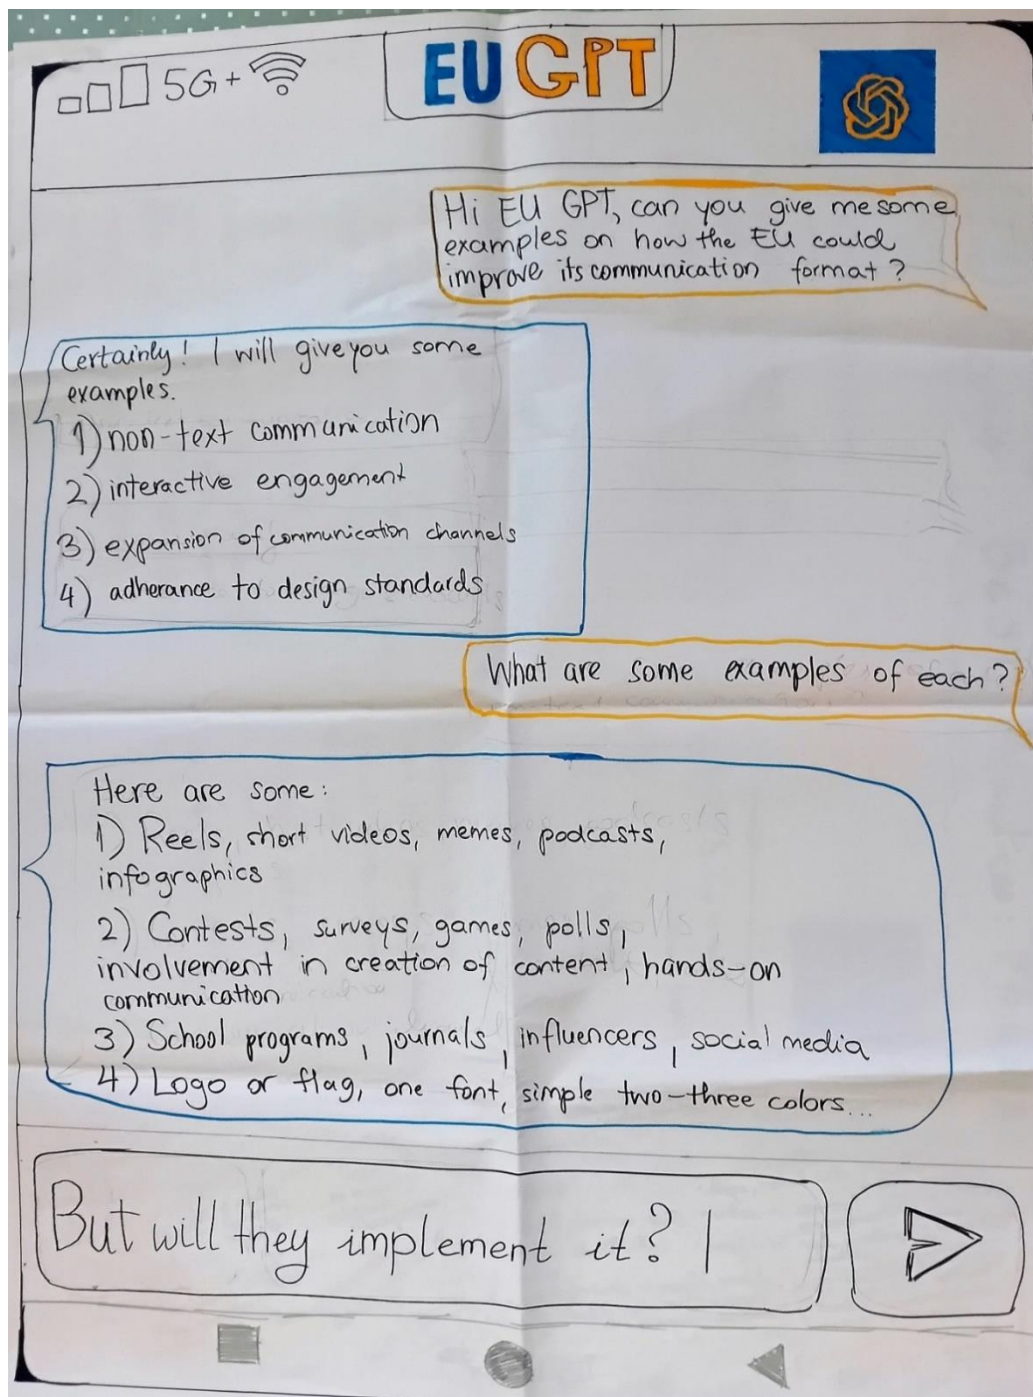 5G+
EU GPT
Hi EU GPT, can you give me some
examples on how the EU could
improve its communication format?
Certainly! I will give you some
examples.
1) non-text communication
2) interactive engagement
3) expansion of communication channels
4) adherance to design standards
What are some examples of each?
Here are some:
1) Reels, short videos, memes, podcasts,
infographics
2) Contests, surveys, games, polls,
involvement in creation of content, hands-on
communication
3) School programs, journals, influencers, social media
4) Logo or flag, one font, simple two-three colors...
But will they implement it? |